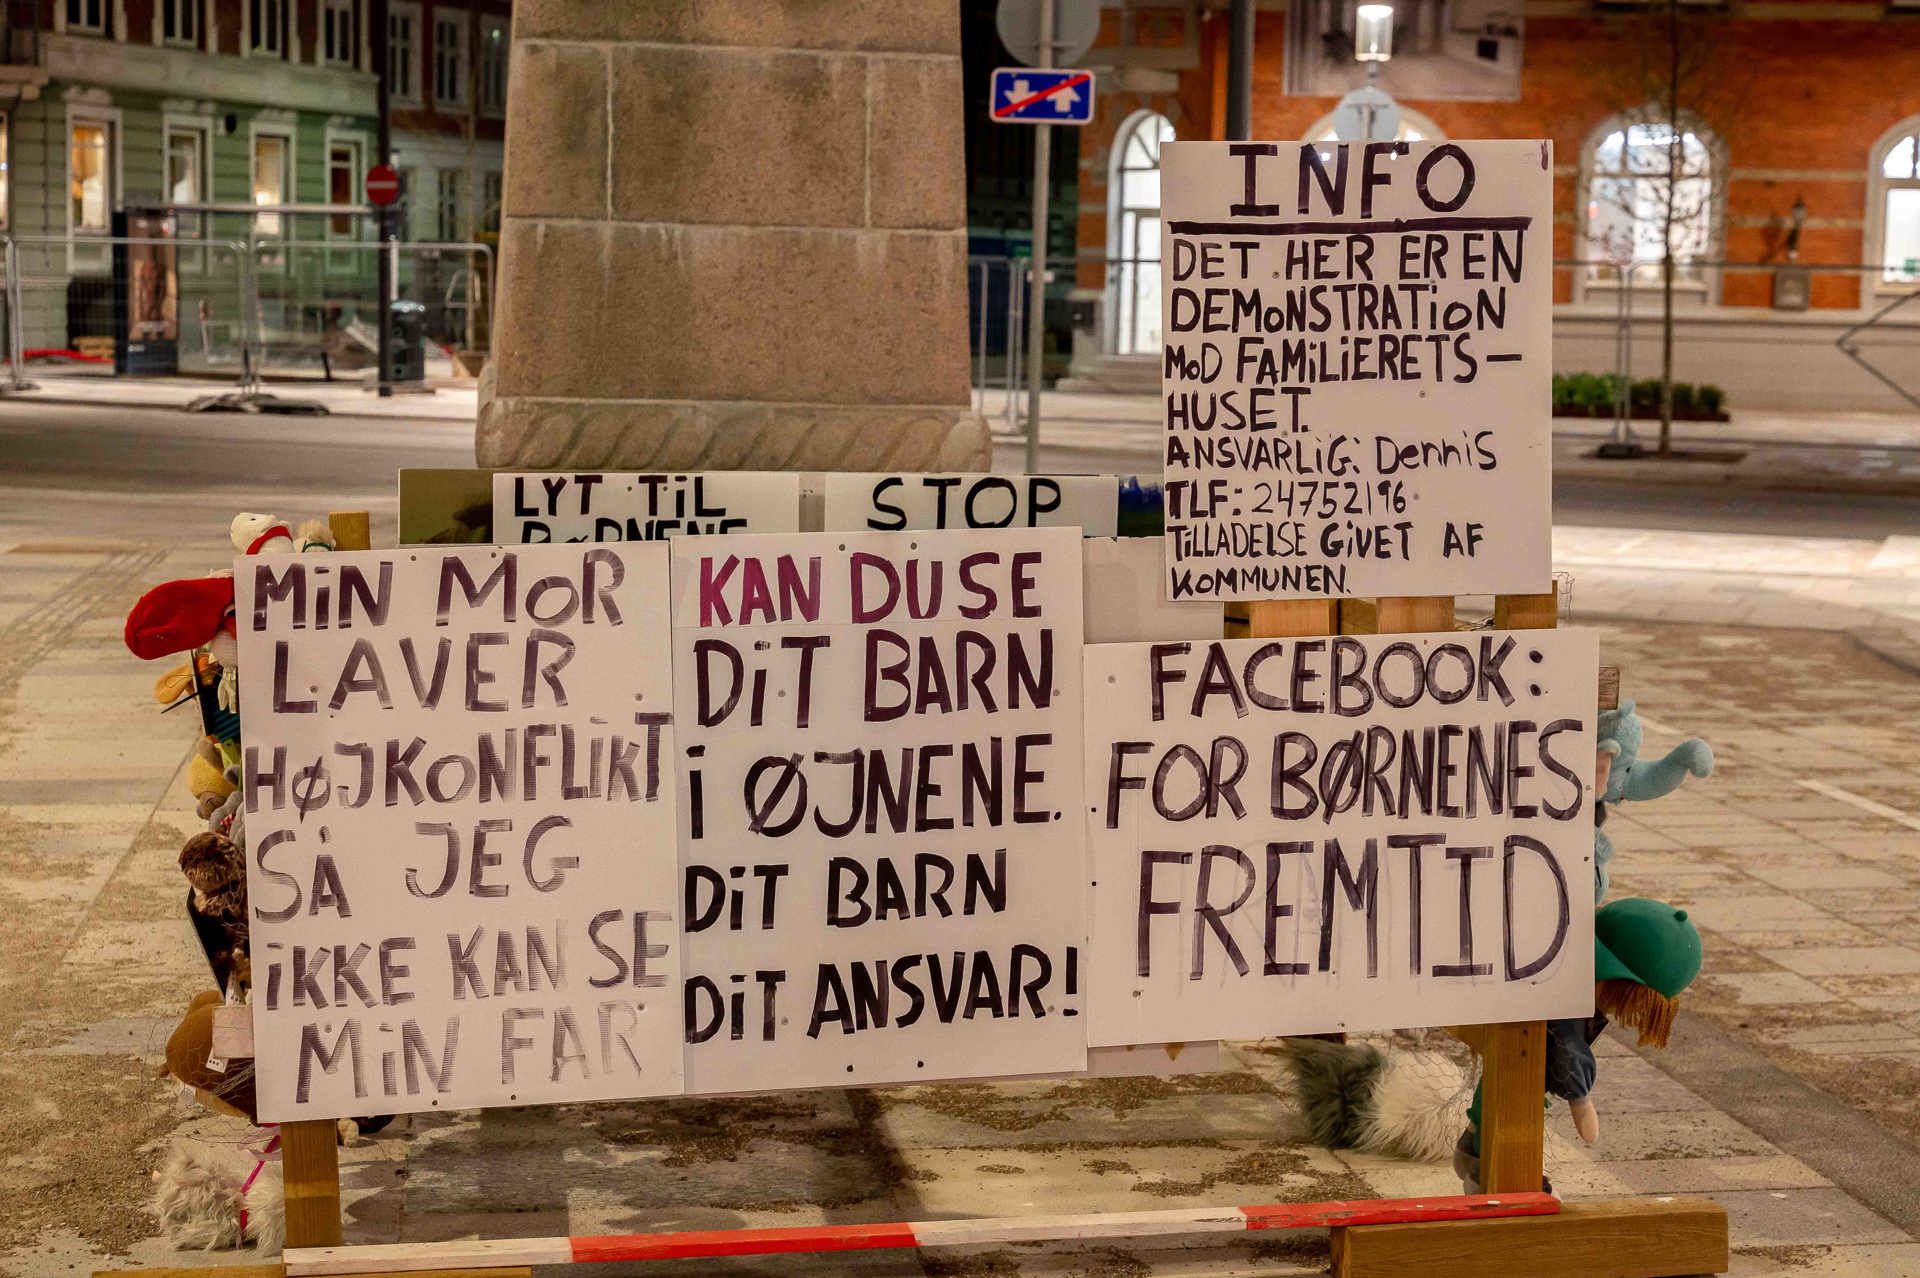 INFO
DET HER ER EN
DEMONSTRATION
MOD FAMILIERETS-
HUSET.
ANSVARLIG: Dennis
TLF: 24752196
TILLADELSE GIVET AF
KOMMUNEN.
LYT TIL
BØRNENE
STOP
MIN MOR
LAVER
HØJKONFLIKT
SÅ JEG
IKKE KAN SE
MIN FAR
KAN DU SE
DIT BARN
I ØJNENE.
DIT BARN
DIT ANSVAR!
FACEBOOK:
FOR BØRNENES
FREMTID